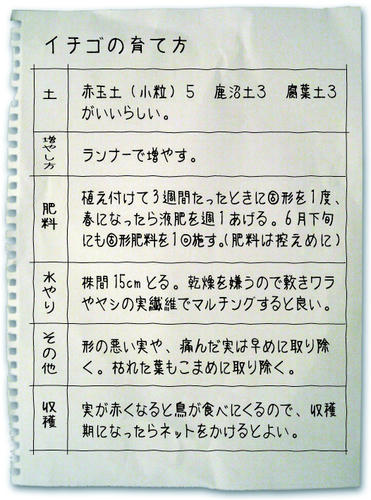 イチゴの育て方
土
赤玉土（小粒）5 鹿沼土3 腐葉土3
がいいらしい。
増やし方
ランナーで増やす。
肥料
植え付けて3週間たったときに固形を1度、
春になったら液肥を週1あげる。6月下旬
にも固形肥料を1回施す。(肥料は控えめに)
水やり
株間15cmとる。乾燥を嫌うので敷きワラ
ややシの実繊維でマルチングすると良い。
その他
形の悪い実や、痛んだ実は早めに取り除
く。枯れた葉もこまめに取り除く。
収穫
実が赤くなると鳥が食べにくるので、収穫
期になったらネットをかけるとよい。